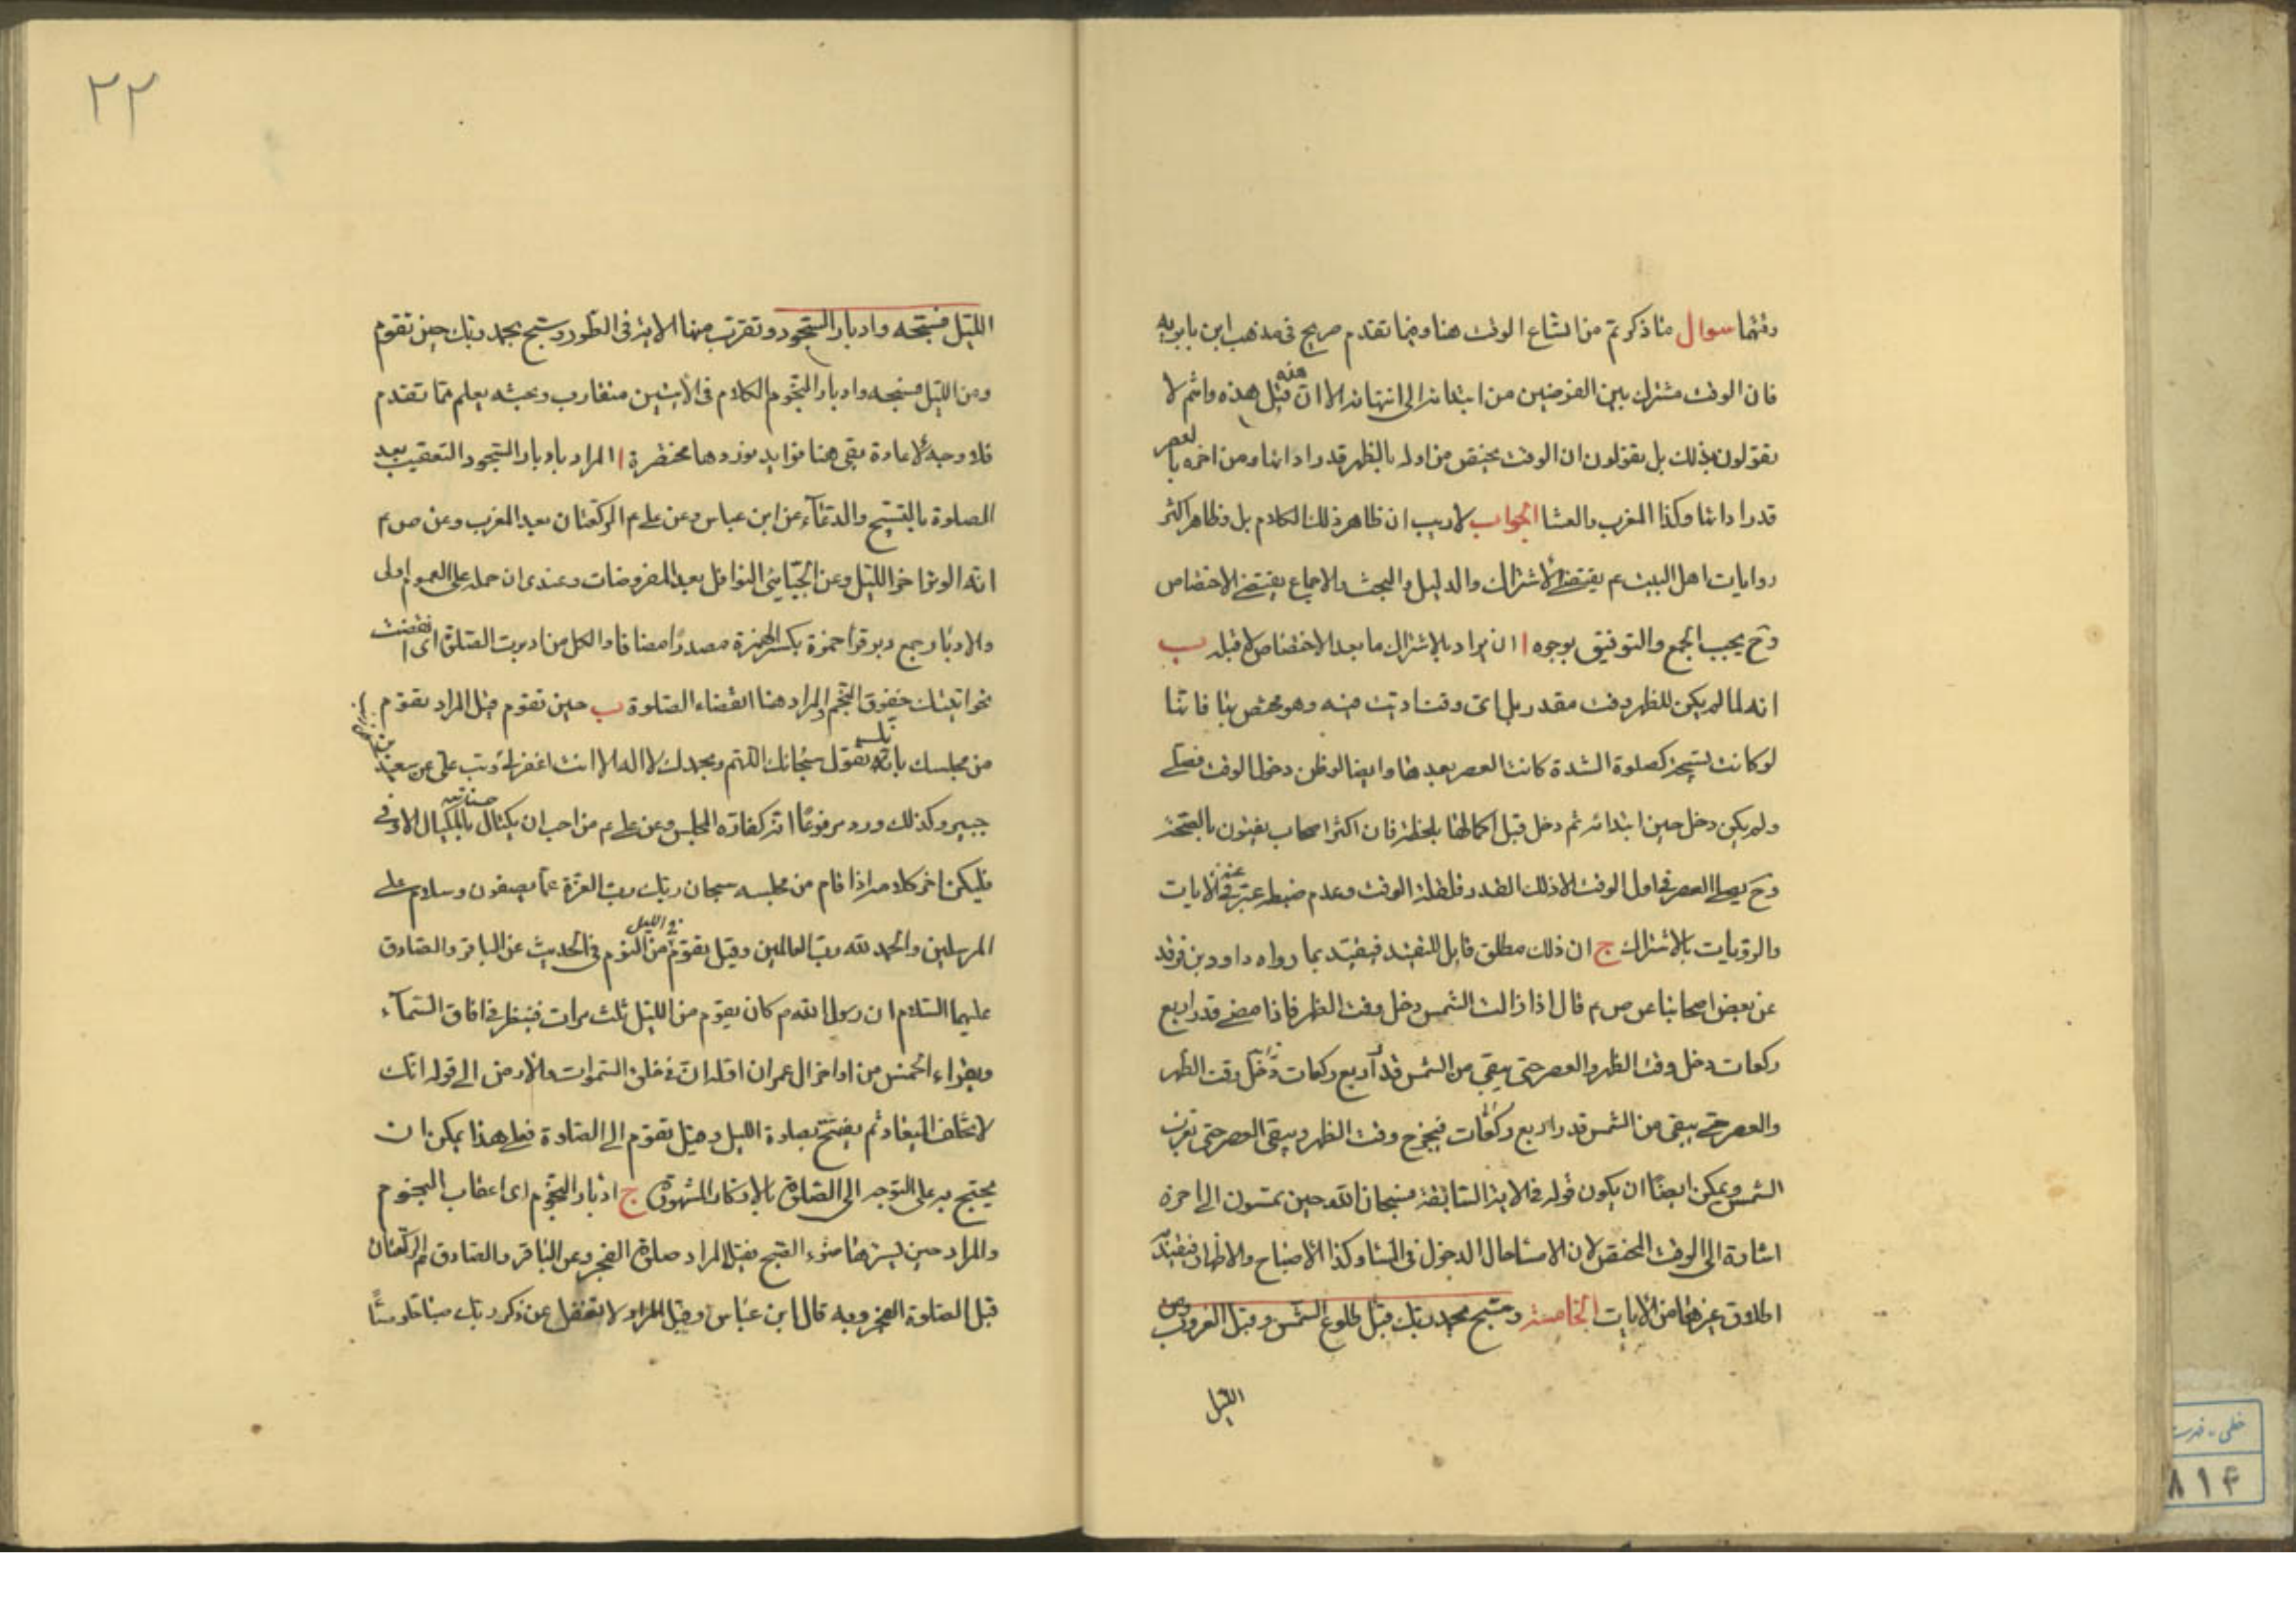 وقتهما سوال ما ذكرتم من اتساع الوقت هنا وفيما تقدم صريح في مذهب ابن بابويه
فان الوقت مشترك بين الفرضين من ابتدائه الى انتهائه الا ان قبل هذه منه وانتم لا
تقولون بذلك بل تقولون ان الوقت يختص من اوله بالظهر قدر ادائها ومن اخره بالعصر
قدر ادائها وكذا المغرب والعشا الجواب لا ريب ان ظاهر ذلك الكلام بل وظاهر اكثر
روايات اهل البيت ع يقتضي الاشتراك والدليل والبحث والاجماع يقتضي الاختصاص
وح يجب الجمع والتوفيق بوجوه ا ان يراد بالاشتراك ما بعد الاختصاص لا قبله ب
انه لما لم يكن للظهر وقت مقدر بل اى وقت اديت فيه وهو مختص بها فاتنا
لو كانت تسبيحة كصلوة الشدة كانت العصر بعدها وايضا لو ظن دخول الوقت فصلى
ولم يكن دخل حين ابتدائه ثم دخل قبل اكمالها بلحظة فان اكثر اصحاب يفتون بالصحة
وح يصلى العصر في اول الوقت الا ذلك القدر فلقلة الوقت وعدم ضبطه عبر عنه في الايات
والروايات بالاشتراك ج ان ذلك مطلق قابل للتقييد فيقيد بما رواه داود بن فرقد
عن بعض اصحابنا عن ص ع قال اذا زالت الشمس دخل وقت الظهر فاذا مضى قدر اربع
ركعات دخل وقت الظهر والعصر حتى يبقى من الشمس قدر اربع ركعات دخل وقت الظهر
والعصر حتى يبقى من الشمس قدر اربع ركعات فيخرج وقت الظهر ويبقى العصر حتى تغرب
الشمس ويمكن ايضا ان يكون قوله في الاية السابقة فسبحان الله حين تمسون الى اخره
اشارة الى الوقت المختص لان الامساء حال الدخول في المسا وكذا الاصباح والاظهار فيقيد
اطلاق غيرها من الايات الخامسة وسبح بحمد ربك قبل طلوع الشمس وقبل الغروب ومن
الليل
٢٢
الليل فسبحه وادبار السجود وتقرب منها الاية في الطور وسبح بحمد ربك حين تقوم
ومن الليل فسبحه وادبار النجوم الكلام في الايتين متقارب وبحثه يعلم مما تقدم
فلا وجه لاعادة بقى هنا فوايد نوردها مختصرة ا المراد بادبار السجود التعقيب بعد
الصلوة بالتسبيح والدعاء عن ابن عباس وعن على ع الركعتان بعد المغرب وعن ص ع
انه الوتر اخر الليل وعن الجبائي النوافل بعد المفروضات وعندى ان حمله على العموم اولى
والادبار جمع دبر قرأ حمزة بكسر الهمزة مصدرا مضافا والكل من ادبرت الصلوة اى انقضت
نحو اتيتك خفوق النجم والمراد هنا انقضاء الصلوة ب حين تقوم قيل المراد تقوم
من مجلسك بانك تقول سبحانك اللهم وبحمدك لا اله الا انت اغفر لى وتب على عن سعيد بن
جبير وكذلك ورد مرفوعا انه كفارة المجلس وعن على ع من احب ان يكتال حسناته بالمكيال الاوفى
فليكن اخر كلامه اذا قام من مجلسه سبحان ربك رب العزة عما يصفون وسلام على
المرسلين والحمد لله رب العالمين وقيل يقوم من النوم في الليل في الحديث عن الباقر والصادق
عليهما السلام ان رسول الله ص كان يقوم من الليل ثلث مرات فينظر في افاق السماء
ويقراء الخمس من اواخر ال عمران اولها ان في خلق السموات والارض الى قوله انك
لا تخلف الميعاد ثم يفتتح بصلوة الليل وقيل تقوم الى الصلوة فعلى هذا يمكن ان
يحتج به على التوجه الى الصلوة بالاذكار المشهورة ج ادبار النجوم اى اعقاب النجوم
والمراد حين يسترها ضوء الصبح فقيل المراد صلوة الفجر وعن الباقر والصادق ع الركعتان
قبل الصلوة الفجر وبه قال ابن عباس وقيل المراد لا تغفل عن ذكر ربك صباحا ومساً
خطى - فهرست
٨١۴